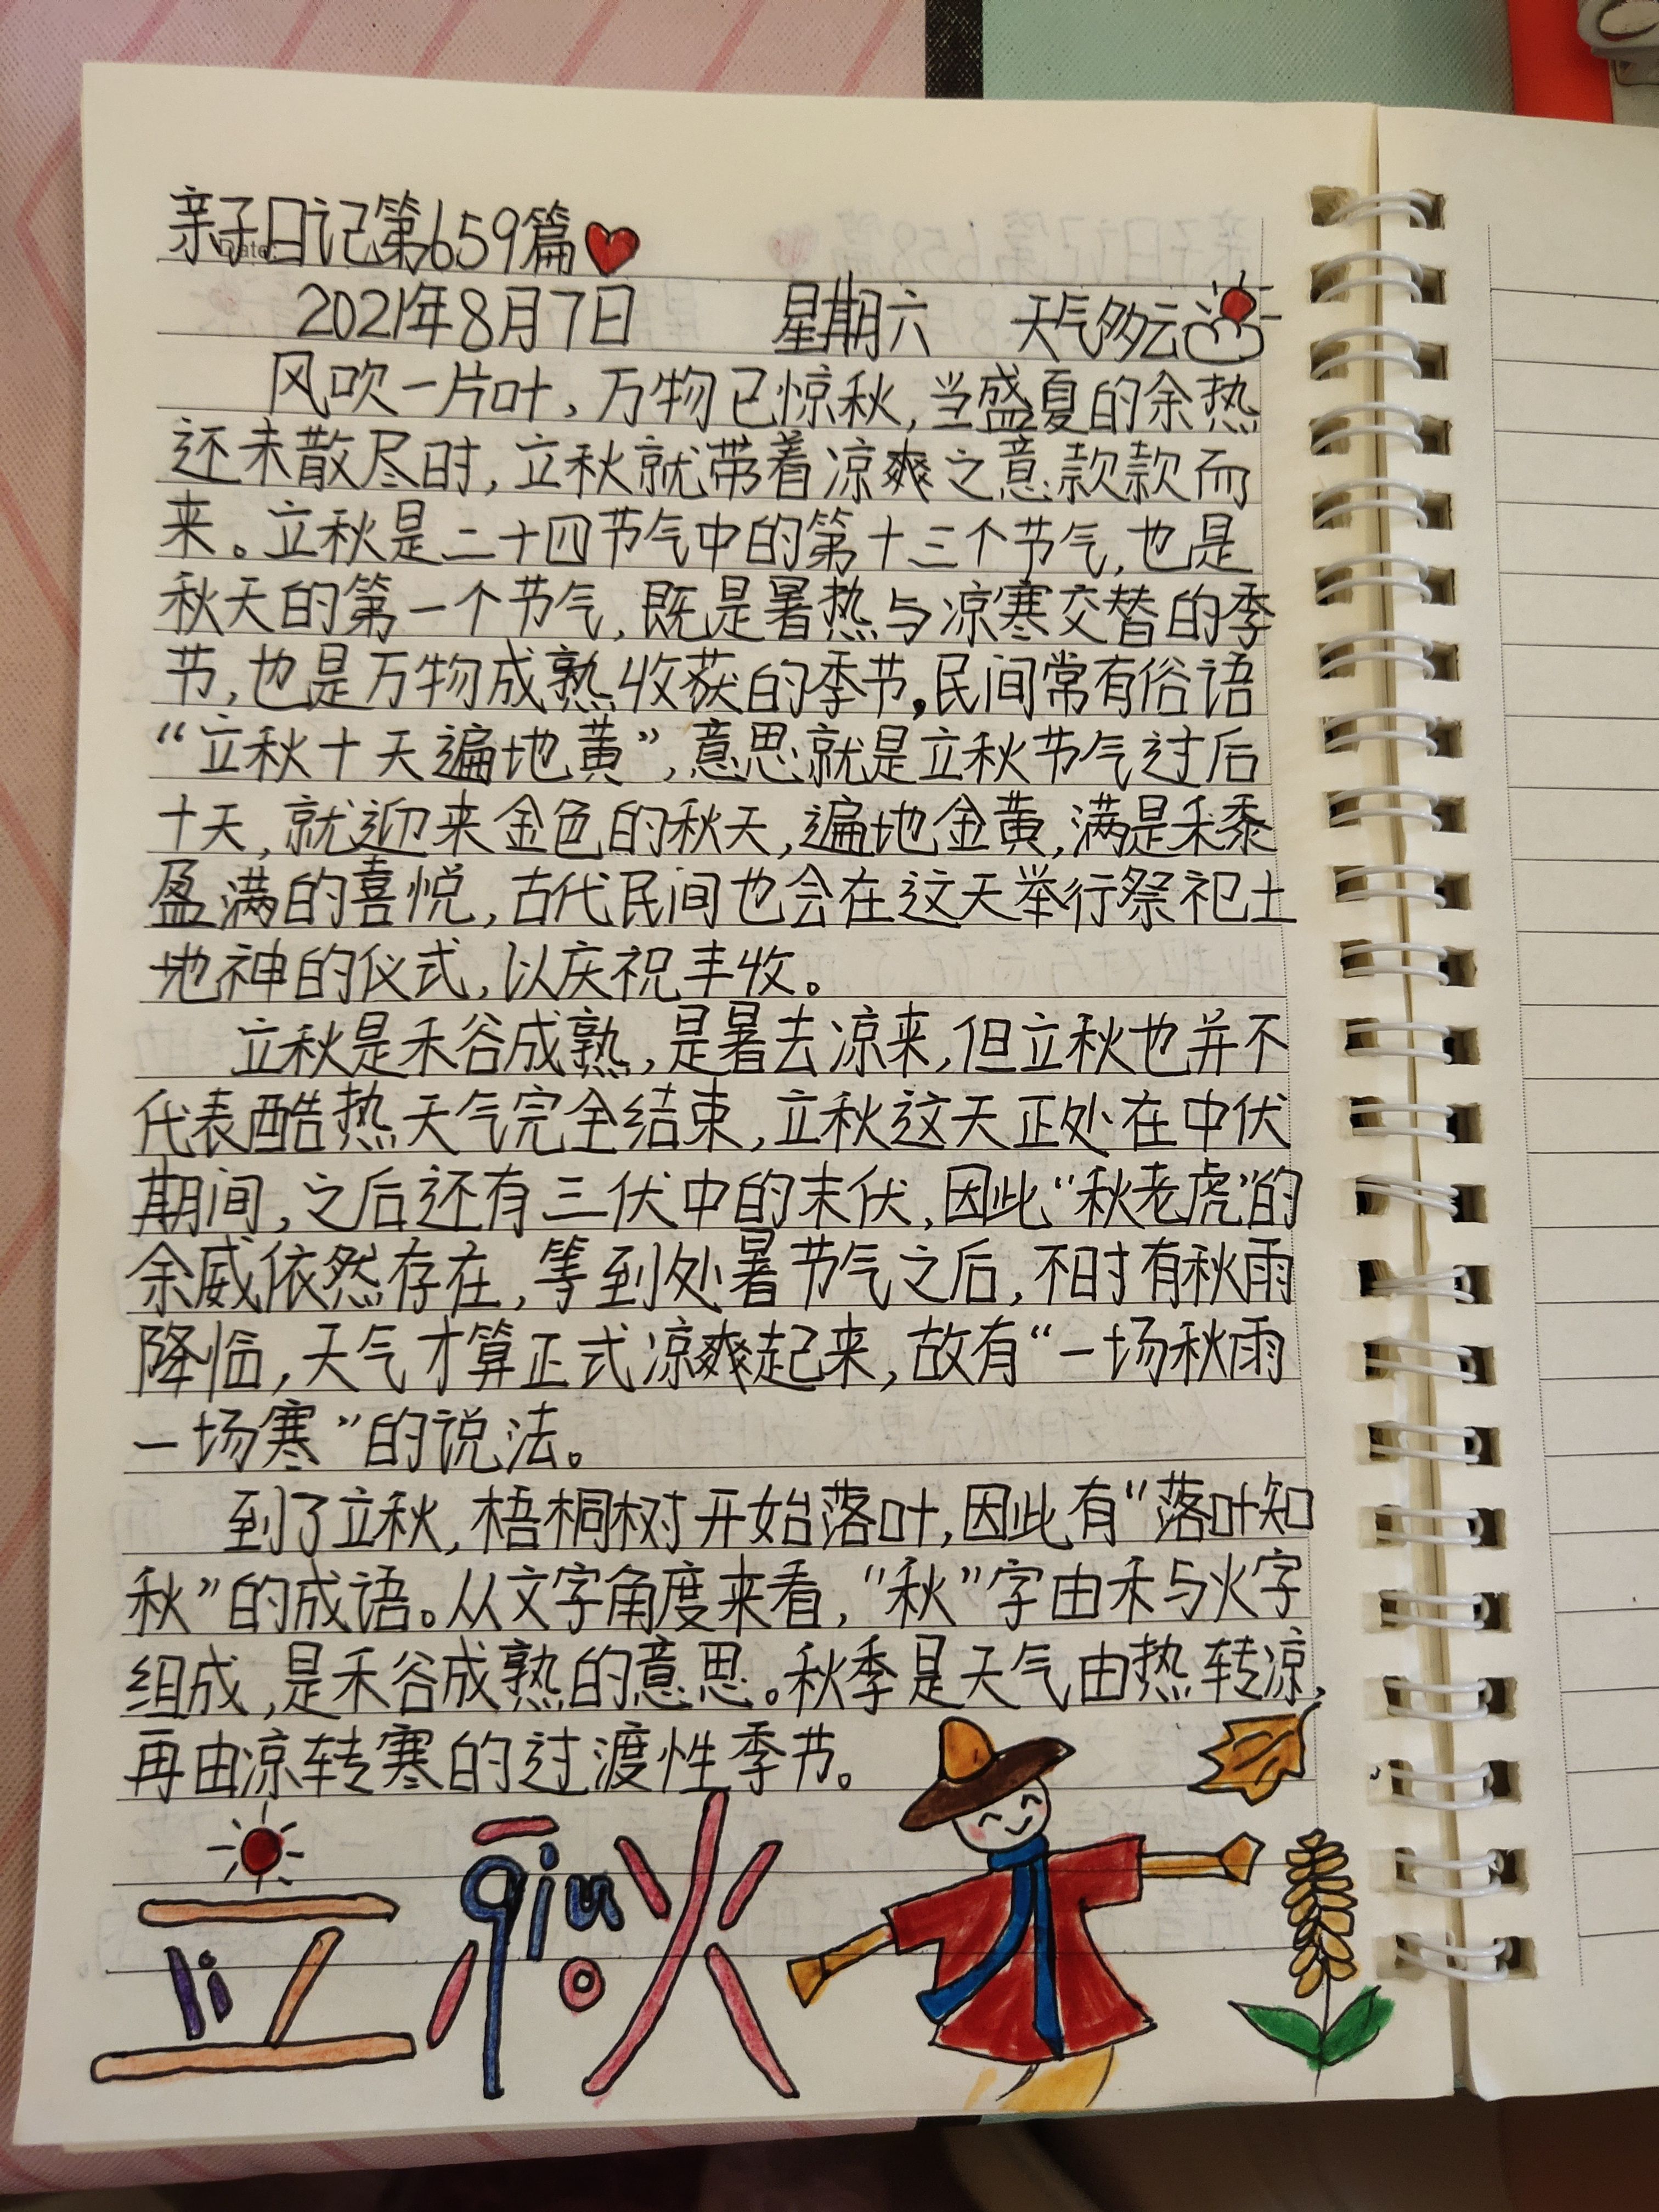 亲子日记第659篇
2021年8月7日 星期六 天气多云
风吹一片叶，万物已惊秋，当盛夏的余热
还未散尽时，立秋就带着凉爽之意款款而
来。立秋是二十四节气中的第十三个节气，也是
秋天的第一个节气，既是暑热与凉寒交替的季
节，也是万物成熟收获的季节，民间常有俗语
“立秋十天遍地黄”，意思就是立秋节气过后
十天，就迎来金色的秋天，遍地金黄，满是禾黍
盈满的喜悦，古代民间也会在这天举行祭祀土
地神的仪式，以庆祝丰收。
立秋是禾谷成熟，是暑去凉来，但立秋也并不
代表酷热天气完全结束，立秋这天正处在中伏
期间，之后还有三伏中的末伏，因此“秋老虎”的
余威依然存在，等到处暑节气之后，不时有秋雨
降临，天气才算正式凉爽起来，故有“一场秋雨
一场寒”的说法。
到了立秋，梧桐树开始落叶，因此有“落叶知
秋”的成语。从文字角度来看，“秋”字由禾与火字
组成，是禾谷成熟的意思。秋季是天气由热转凉，
再由凉转寒的过渡性季节。
立秋
li qiu